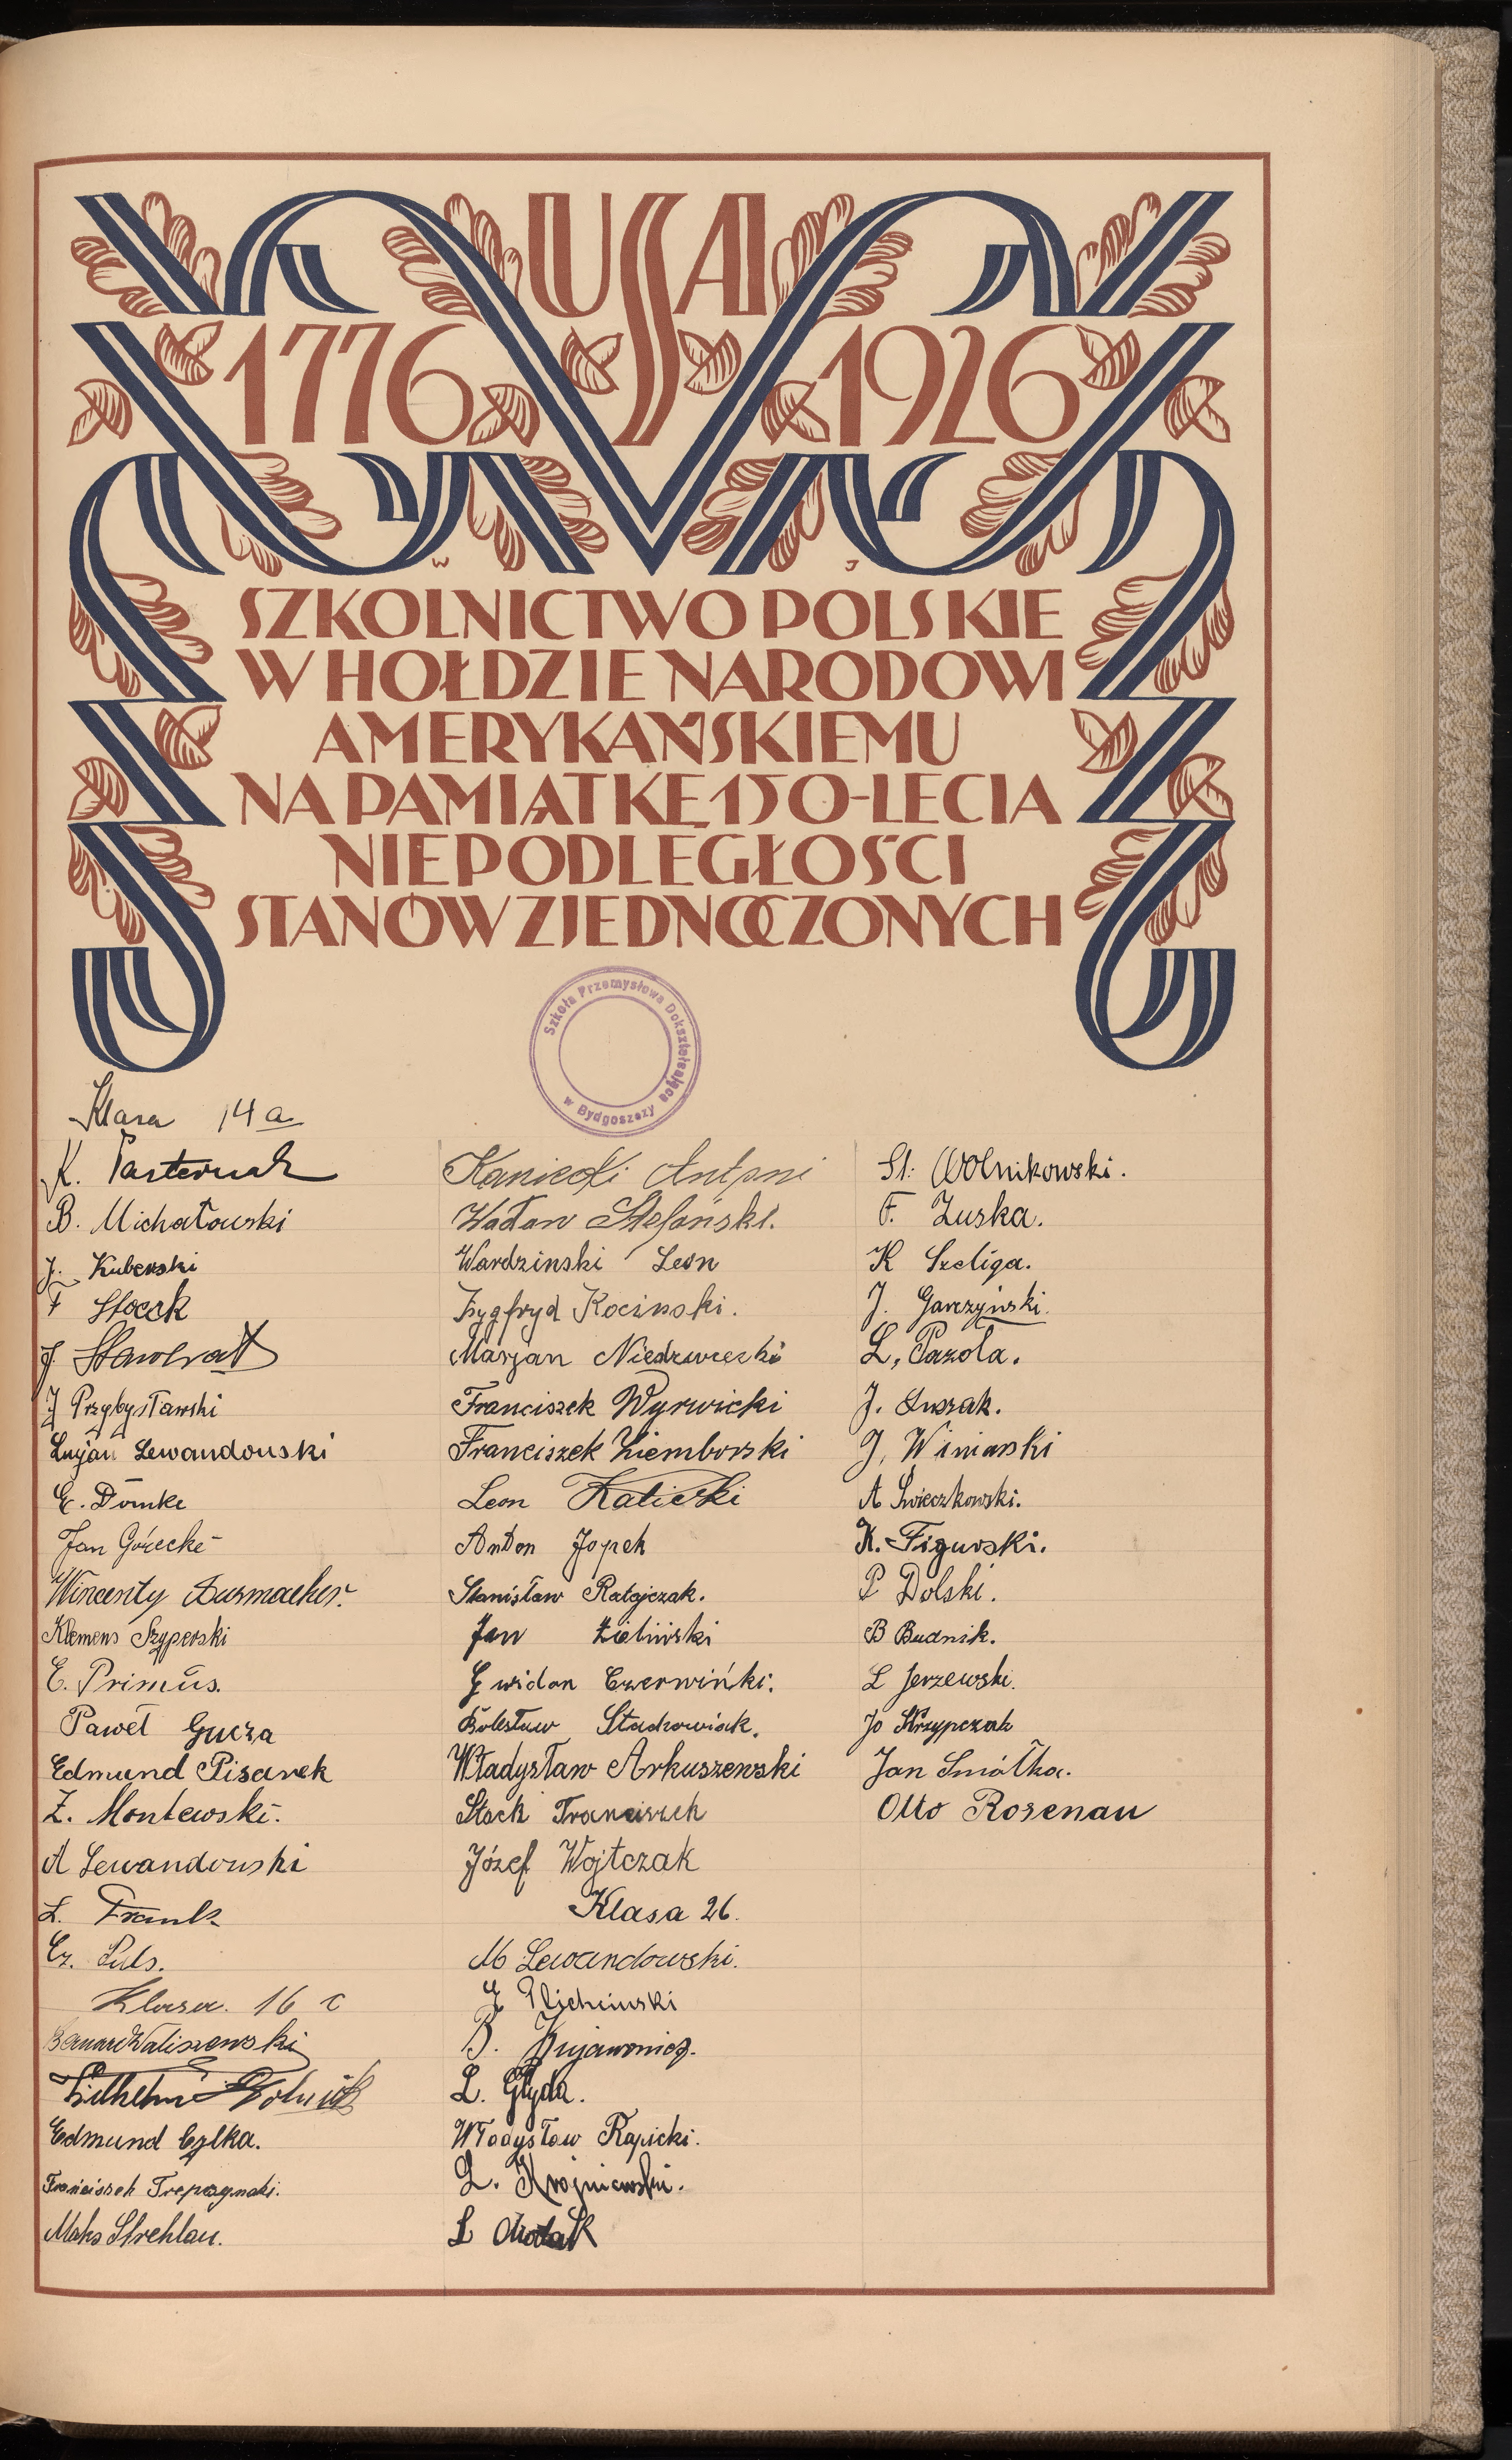 USA
1776 1926
W J
SZKOLNICTWO POLSKIE
W HOŁDZIE NARODOWI
AMERYKAŃSKIEMU
NA PAMIĄTKĘ 150-LECIA
NIEPODLEGŁOŚCI
STANÓW ZJEDNOCZONYCH
Szkoła Przemysłowa Dokształcająca
w Bydgoszczy
Klasa 14 a
K. Pasternak
B. Michałowski
J. Kuberski
F Stoeck
J.
J Przybysławski
Lucjan Lewandowski
E. Domke
Jan Górecki
Wincenty Durmacher.
Klemens Szyperski
E. Primus.
Paweł Gucza
Edmund Pisarek
Z. Montewski.
A Lewandowski
L. Frank
Cz. Puls.
Klasa. 16 c
Bernard Waliszewski
Wilhelm
Edmund Cylka.
Franciszek Trepczynski.
Maks Strehlau.
Kaniecki Antoni
Wacław Stefański.
Wardzinski Leon
Zygfryd Kocinski.
Marjan Niedzwiecki
Franciszek Wyrwicki
Franciszek Ziemborski
Leon Kaliski
Anton Jopek
Stanisław Ratajczak.
Jan Zieliński
Gwidon Czerwiński.
Bolesław Stachowiak.
Władysław Arkuszewski
Stock Franciszek
Józef Wojtczak
Klasa 26.
M Lewandowski.
J Plichciński
B. Kujawowicz.
L. Głyda.
Władysław Rapicki.
L. Krojniewski.
L
St. Wolnikowski.
F. Zuska.
K Szeliga.
J. Garczyński.
L. Pazola.
J. Luszak.
J. Winiarski
A Świeczkowski.
K. Figurski.
P Dolski.
B Budnik.
L Jerzewski.
Jo Skrzypczak
Jan Smółka.
Otto Rosenau